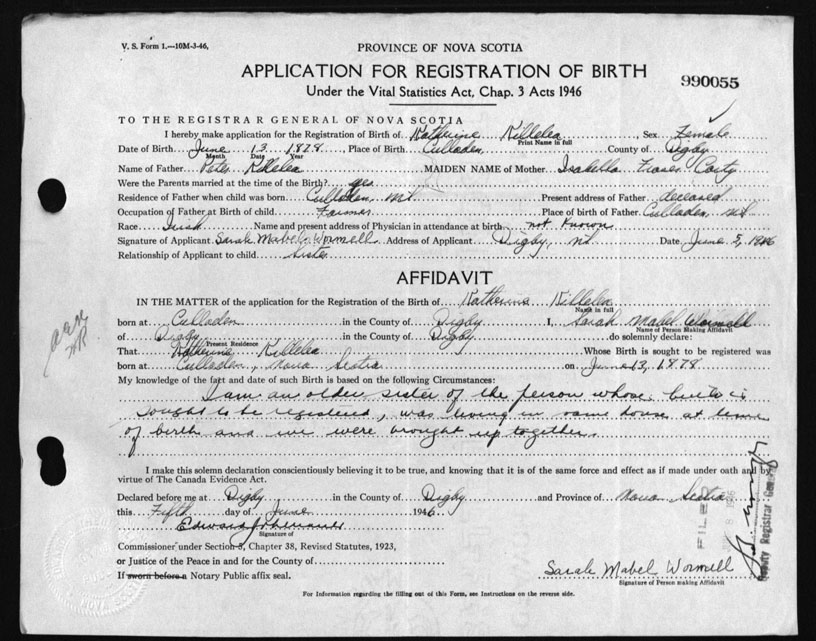 V. S. Form 1.—10M-3-46.
PROVINCE OF NOVA SCOTIA
APPLICATION FOR REGISTRATION OF BIRTH
990055
Under the Vital Statistics Act, Chap. 3 Acts 1946
TO THE REGISTRAR GENERAL OF NOVA SCOTIA
I hereby make application for the Registration of Birth of Katherine Killelea, Sex Female
Print Name in full
Date of Birth June 13 1878, Place of Birth Culloden County of Digby
Month Date Year
Name of Father Peter Killelea MAIDEN NAME of Mother Isabella Fraser
Were the Parents married at the time of the Birth? yes
Residence of Father when child was born Culloden, Present address of Father deceased
Occupation of Father at Birth of child Farmer Place of birth of Father Culloden, NS
Race Irish Name and present address of Physician in attendance at birth not known
Signature of Applicant Sarah Mabel Wormell Address of Applicant Digby, NS Date June 5, 1946
Relationship of Applicant to child Sister
AFFIDAVIT
IN THE MATTER of the application for the Registration of the Birth of Katherine Killelea
Name in full
born at Culloden in the County of Digby I, Sarah Mabel Wormell
Name of Person making Affidavit
of Digby in the County of Digby do solemnly declare:
Present Residence
That Katherine Killelea Whose Birth is sought to be registered was
born at Culloden, Nova Scotia on June 13, 1878
My knowledge of the fact and date of such Birth is based on the following Circumstances:
I am an older sister of the person whose birth is
sought to be registered, was living in same house at time
of birth and we were brought up together.
I make this solemn declaration conscientiously believing it to be true, and knowing that it is of the same force and effect as if made under oath and by
virtue of The Canada Evidence Act.
Declared before me at Digby in the County of Digby and Province of Nova Scotia
this Fifth day of June 1946
Edward
Signature of
Commissioner under Section 3, Chapter 38, Revised Statutes, 1923,
or Justice of the Peace in and for the County of
If sworn before a Notary Public affix seal.
Sarah Mabel Wormell
Signature of Person making Affidavit
FILED
8 1946
Deputy Registrar General
For Information regarding the filling out of this Form, see Instructions on the reverse side.